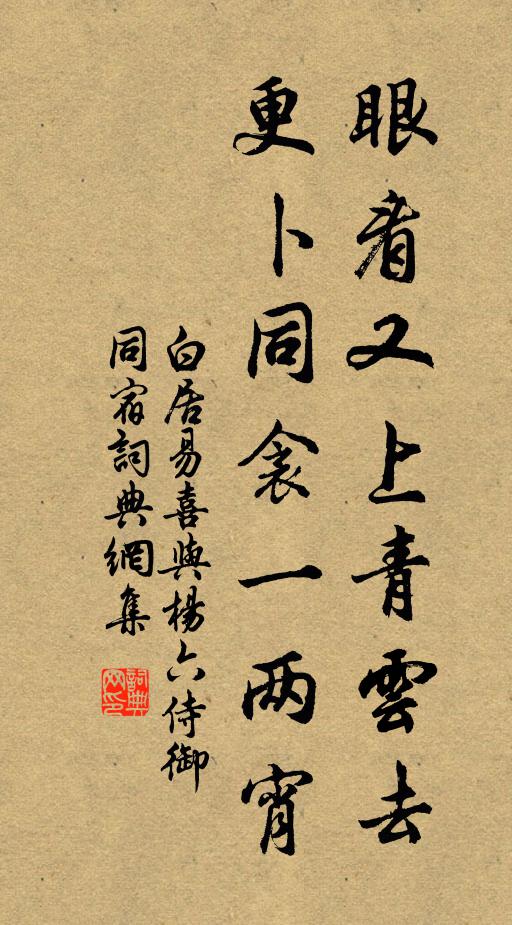 眼看又上青雲去
更卜同衾一两宵
白居易喜與楊六侍御
同宿詞典網集
詞典网印